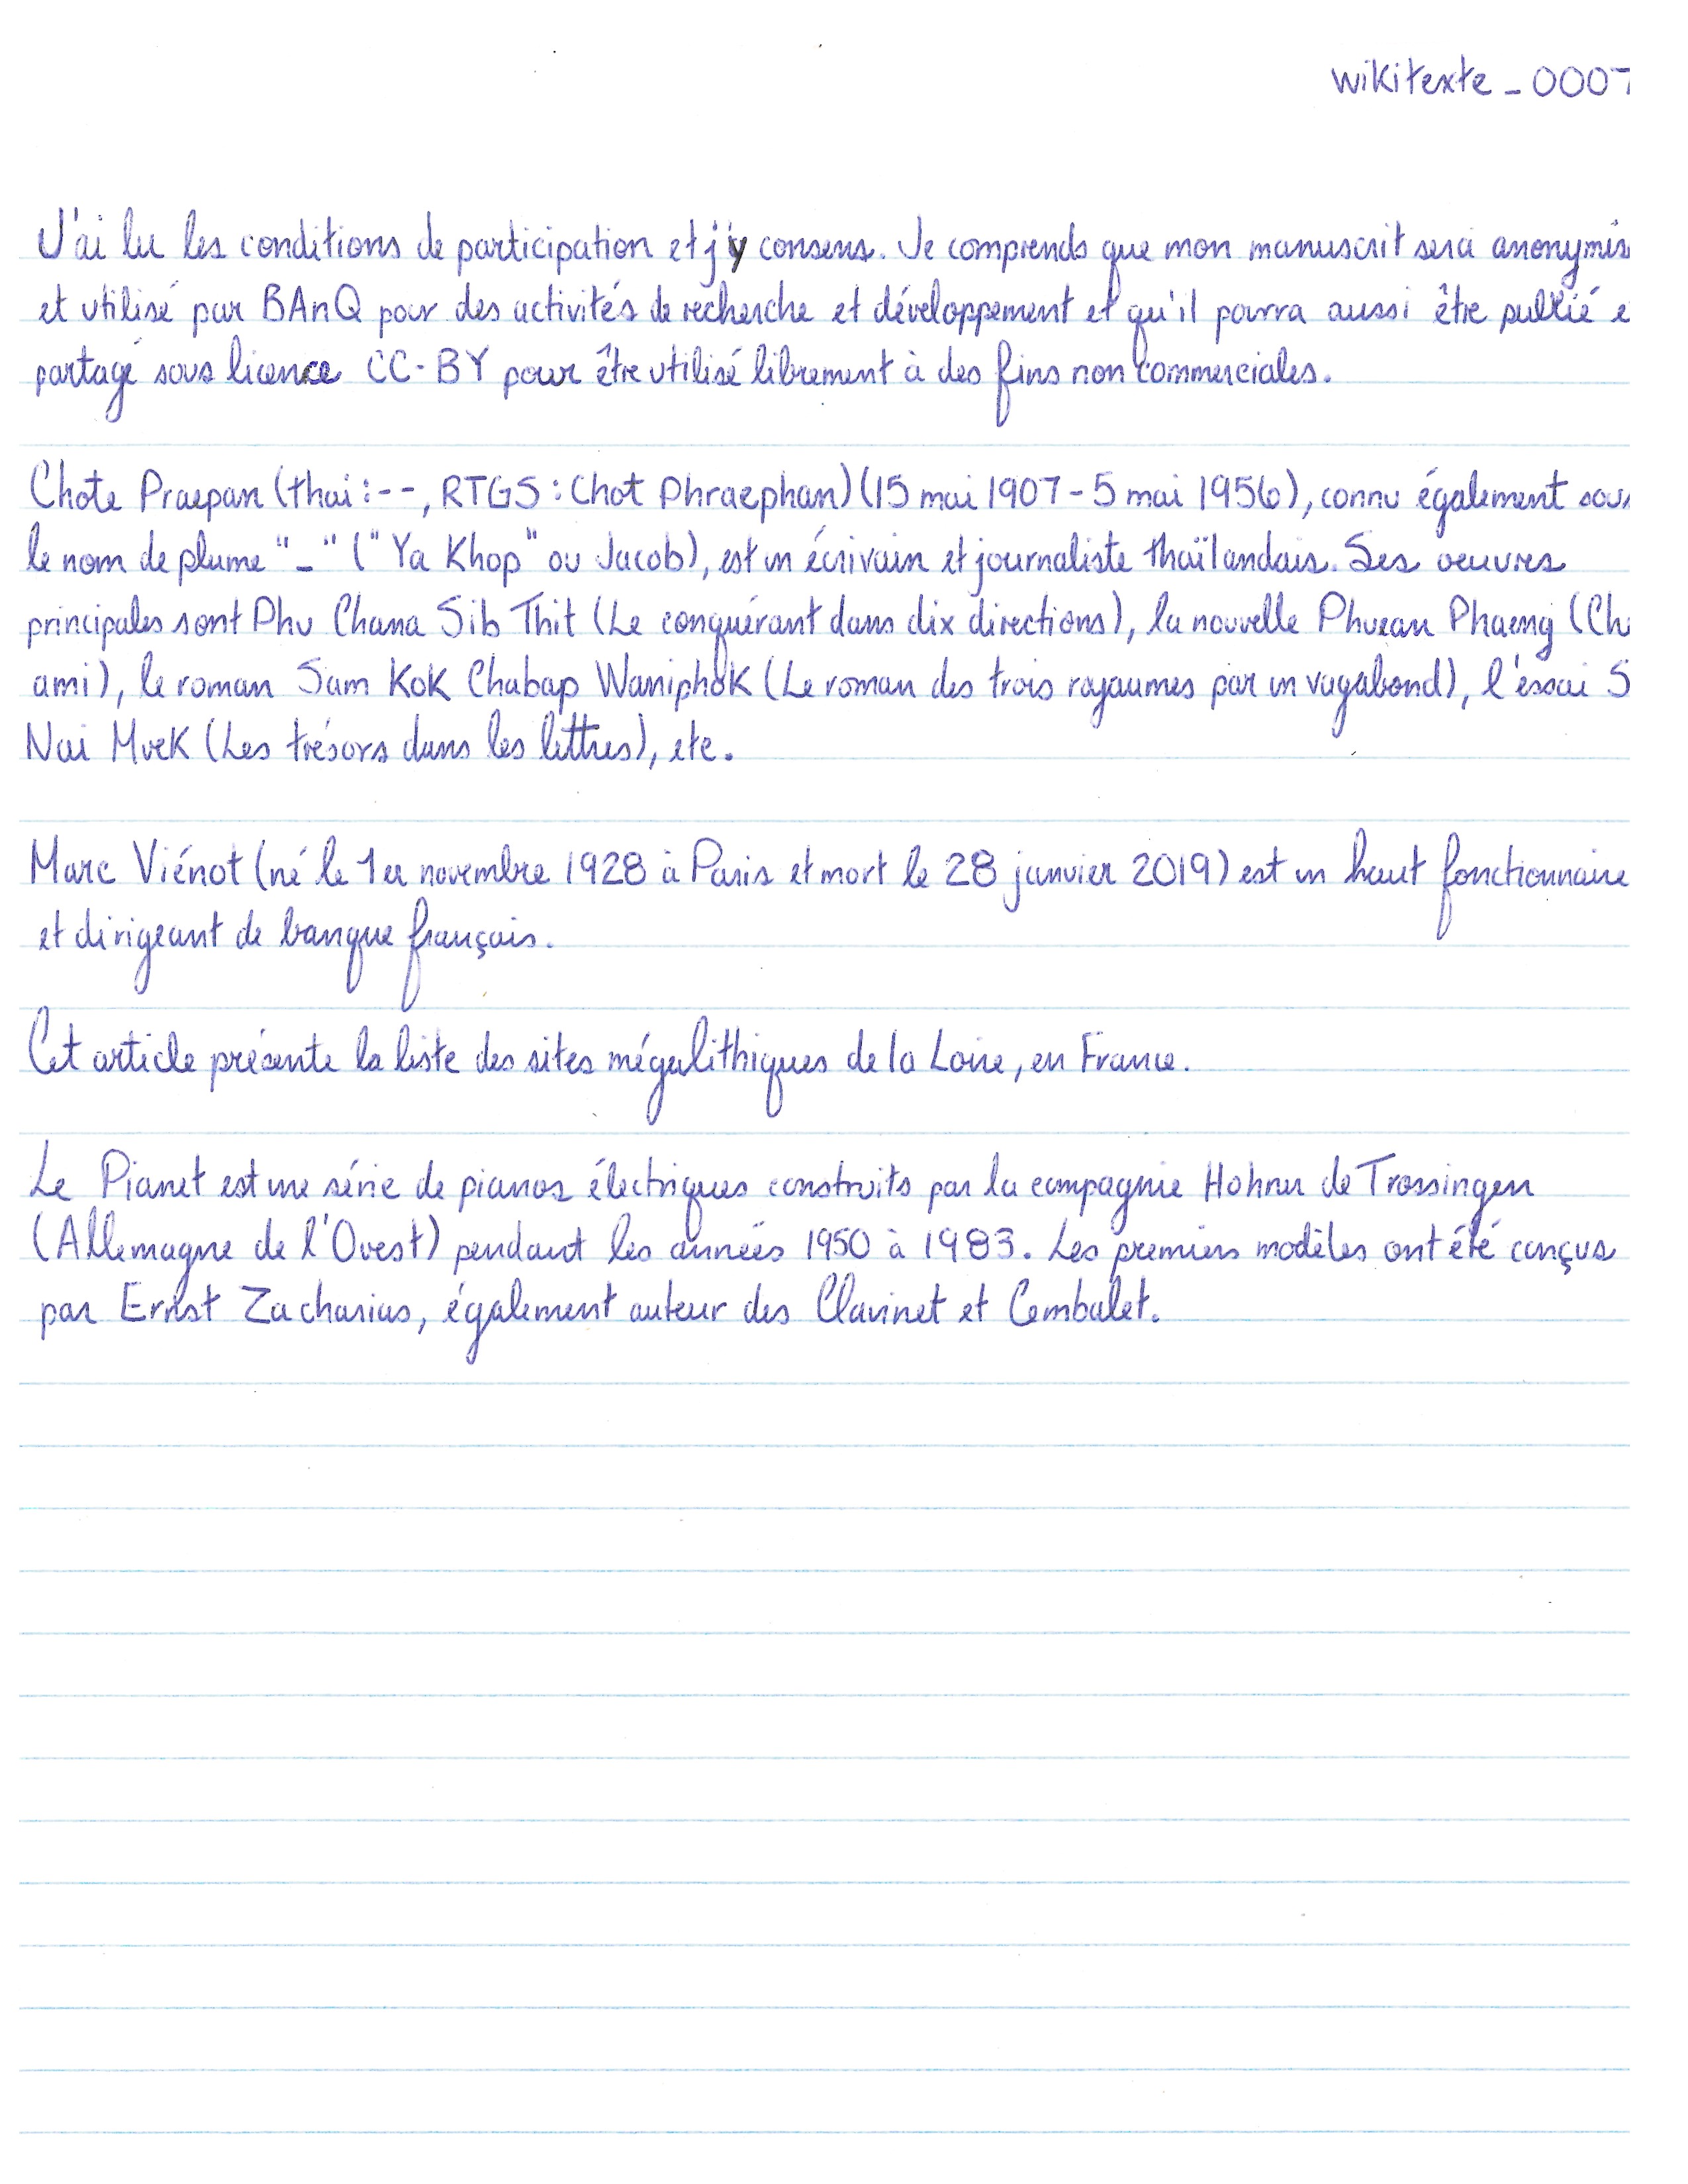 wikitexte_0007
J'ai lu les conditions de participation et j'y consens. Je comprends que mon manuscrit sera anonymis
et utilisé par BAnQ pour des activités de recherche et développement et qu'il pourra aussi être publié e
partagé sous licence CC-BY pour être utilisé librement à des fins non commerciales.
Chote Praepan (thai :--, RTGS : Chot Phraephan) (15 mai 1907 - 5 mai 1956), connu également sous
le nom de plume "_" ("Ya Khop" ou Jacob), est un écrivain et journaliste thaïlandais. Ses oeuvres
principales sont Phu Chana Sib Thit (Le conquérant dans dix directions), la nouvelle Phuean Phaeng (Ch
ami), le roman Sam Kok Chabap Waniphok (Le roman des trois royaumes par un vagabond), l'éssai S
Nai Muek (Les trésors dans les lettres), etc.
Marc Viénot (né le 1er novembre 1928 à Paris et mort le 28 janvier 2019) est un haut fonctionnaire
et dirigeant de banque français.
Cet article présente la liste des sites mégalithiques de la Loire, en France.
Le Pianet est une série de pianos électriques construits par la compagnie Hohner de Trossingen
(Allemagne de l'Ouest) pendant les années 1950 à 1983. Les premiers modèles ont été conçus
par Ernst Zacharias, également auteur des Clavinet et Cembalet.